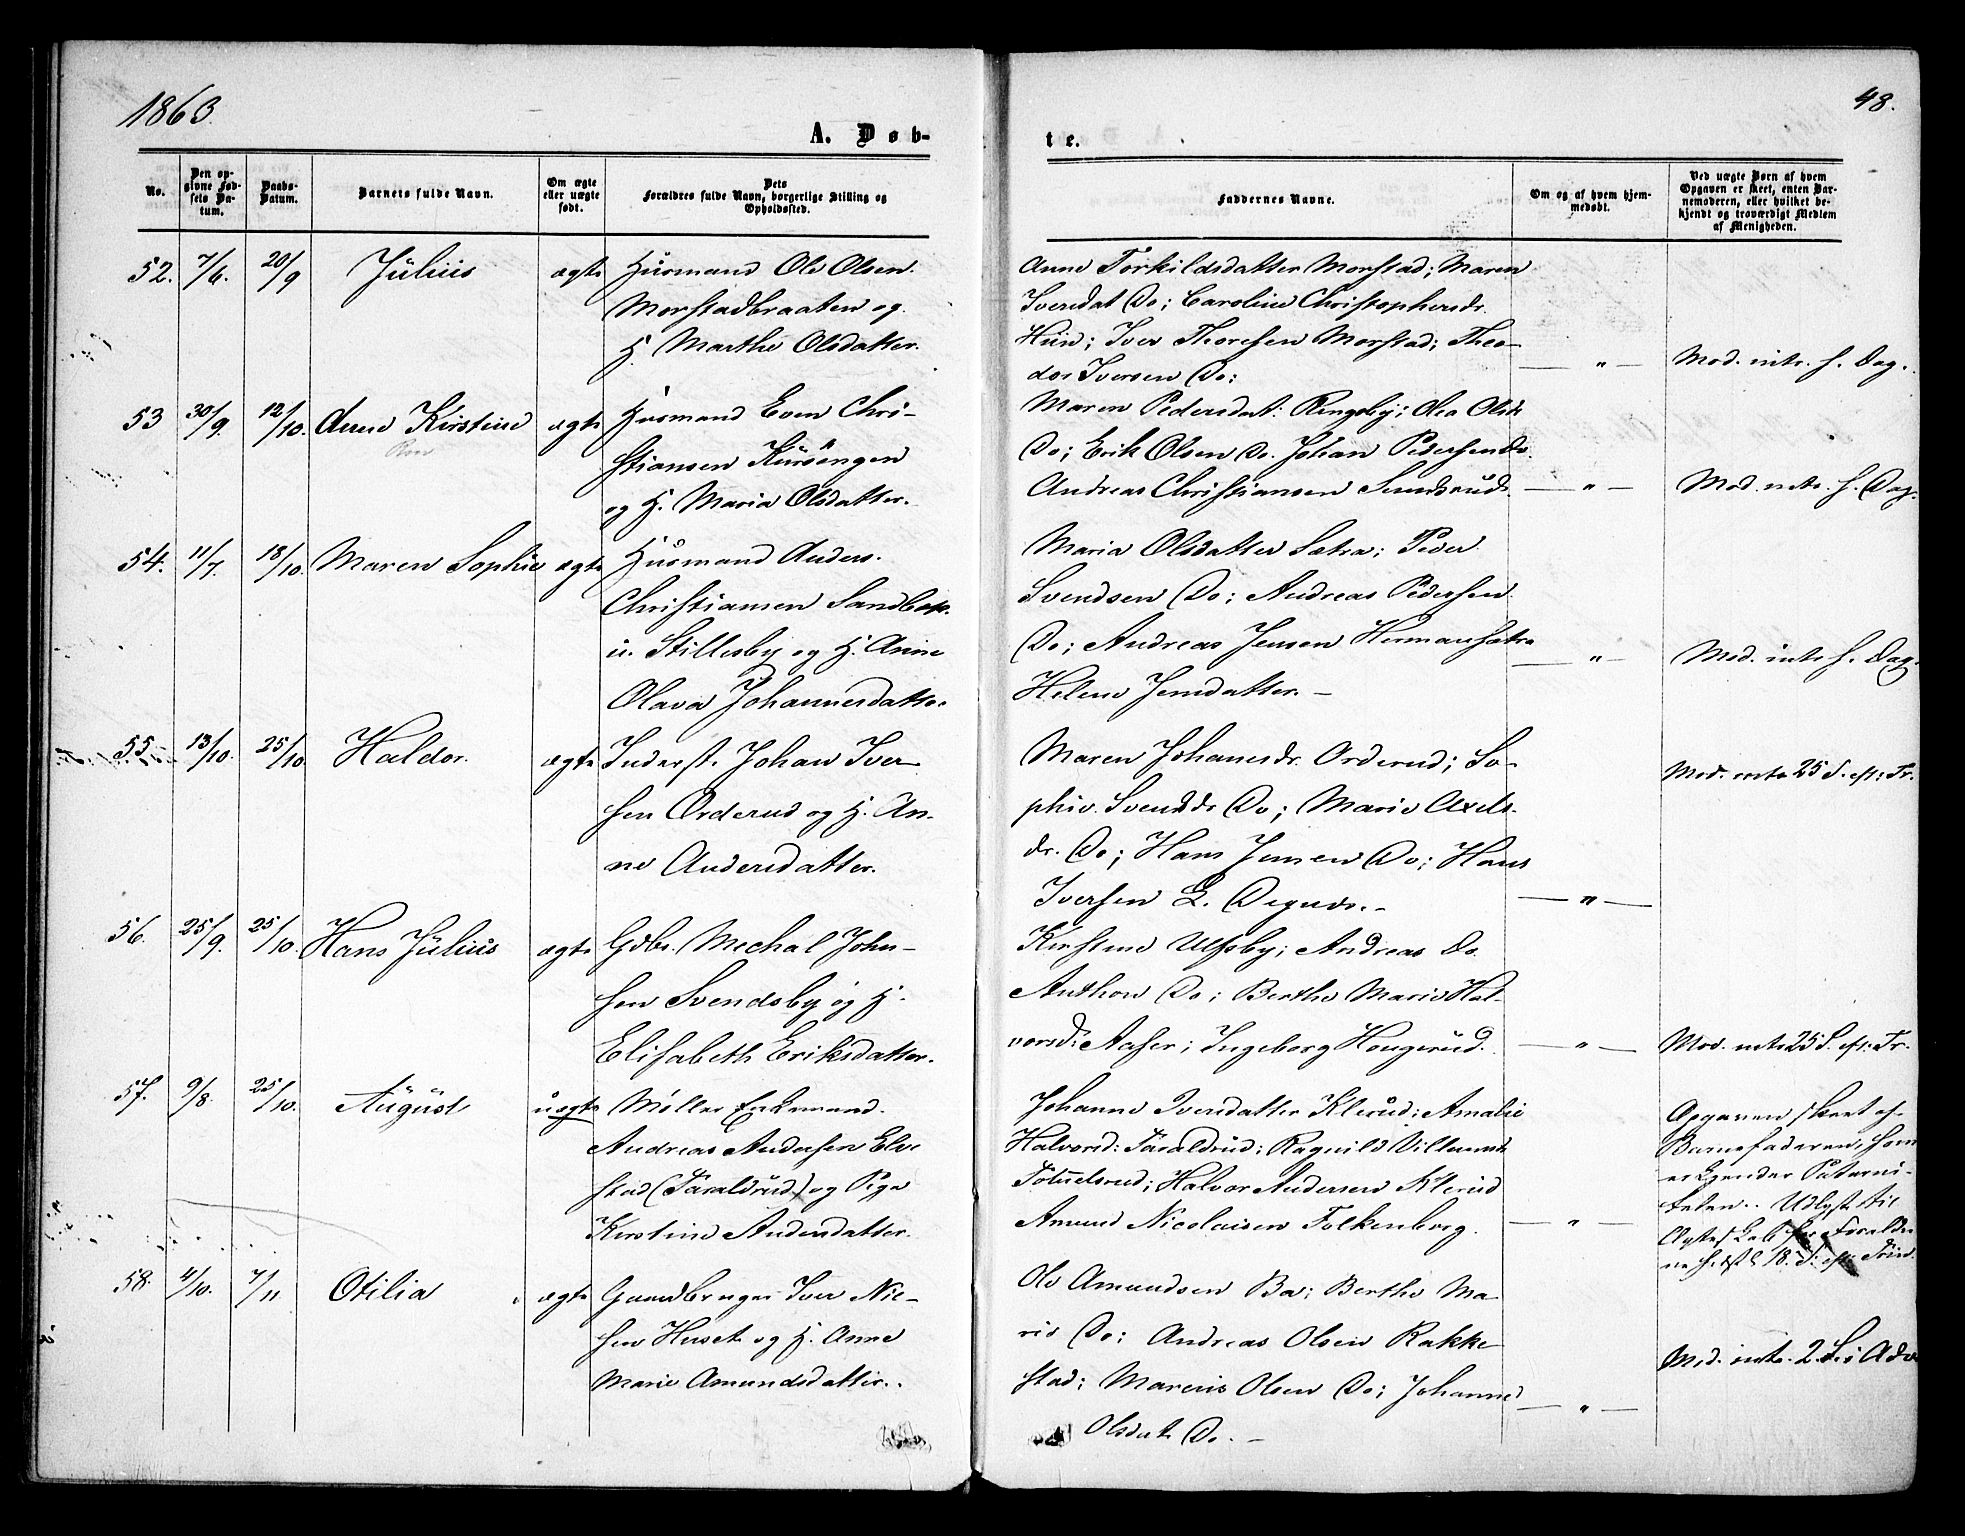 1863.
48.
A. Døb-
te.
No.
Den op-
givne Fød-
sels Da-
tum.
Daabs-
Datum.
Barnets fulde Navn.
Om ægte
eller uægte
født.
Dets
Forældres fulde Navn, borgerlige Stilling og
Opholdssted.
Faddernes Navne.
Om og af hvem hjem-
medøbt.
Ved uægte Børn af hvem
Opgaven er skeet, enten Bar-
nemoderen, eller hvilket be-
kjendt og troværdigt Medlem
af Menigheden.
52. 7/6. 20/9 Julius ægte Husmand Ole Olsen
Morstadbraaten og
H. Marthe Olsdatter.
Anne Torkildsdatter Morstad; Maren
Iversdat Do; Caroline Christophersdr.
Huin; Iver Thoresen Morstad; Theo-
dor Iversen Do;
— " — Mod. intr. s. Dag.
53 30/9. 12/10. Anne Kirstine ægte Husmand Even Chri-
stiansen Kursengen
og H. Maria Olsdatter.
Maren Pedersdat: Ringsby; Olea Olsdr
Do; Erik Olsen Do. Johan Pedersen Do.
Andreas Christiansen Sundsrud.
— " — Mod. intr. s. Dag.
54. 11/7. 18/10. Maren Sophie ægte Husmand Anders
Christiansen Sandbak.
u. Stillesby og H. Anne
Olava Johannesdatter
Maria Olsdatter Sætra; Peder
Svendsen Do; Andreas Pedersen
Do; Andreas Jensen Hermansætra
Helene Jensdatter. —
— " — Mod. intr. s. Dag.
55 13/10. 25/10. Haldor. ægte Inderst. Johan Iver-
sen Orderud og H. An-
ne Andersdatter.
Maren Johansdr. Orderud; So-
phie Svendsdr Do; Marie Axels-
dr. Do; Hans Jensen Do; Hans
Iversen L. Degnæs. —
— " — Mod. intr 25 S. eft: Tr.
56. 25/9. 25/10. Hans Julius ægte Gdbr. Mechal John-
sen Svendsby og H.
Elisabeth Eriksdatter.
Kirstine Ulfsby; Andreas Do.
Anthon Do; Berthe Marie Hal-
vorsd: Aaser; Ingeborg Hougerud.
— " — Mod. intr 25 S. eft: Tr.
57. 9/8. 25/10. August uægte Møller Enkemand
Andreas Andersen Elve
stad (Taraldrud) og Pige
Kirstine Andersdatter.
Johanne Iversdatter Klerud; Amalie
Halvorsd: Taraldrud; Ragnild Villumsdr
; Halvor Andersen Klerud
Amund Nicolaisen Folkenborg.
— " — Opgaven skeet af
Barnefaderen, som
erkjender Paterni-
teten. Udlyst til
Ægteskab for Foreldre
ne sidst 18. S. eft: Trin.
58. 4/10. 7/11 Otilia ægte Gaardbruger Iver Nil-
sen Huset og H. Anne
Marie Amundsdatter.
Ole Amundsen Bø; Berthe Ma-
rie Do; Andreas Olsen Rakke-
stad; Marcus Olsen Do; Johanne
Olsdat Do. —
— " — Mod. intr. 2 S. i Adv